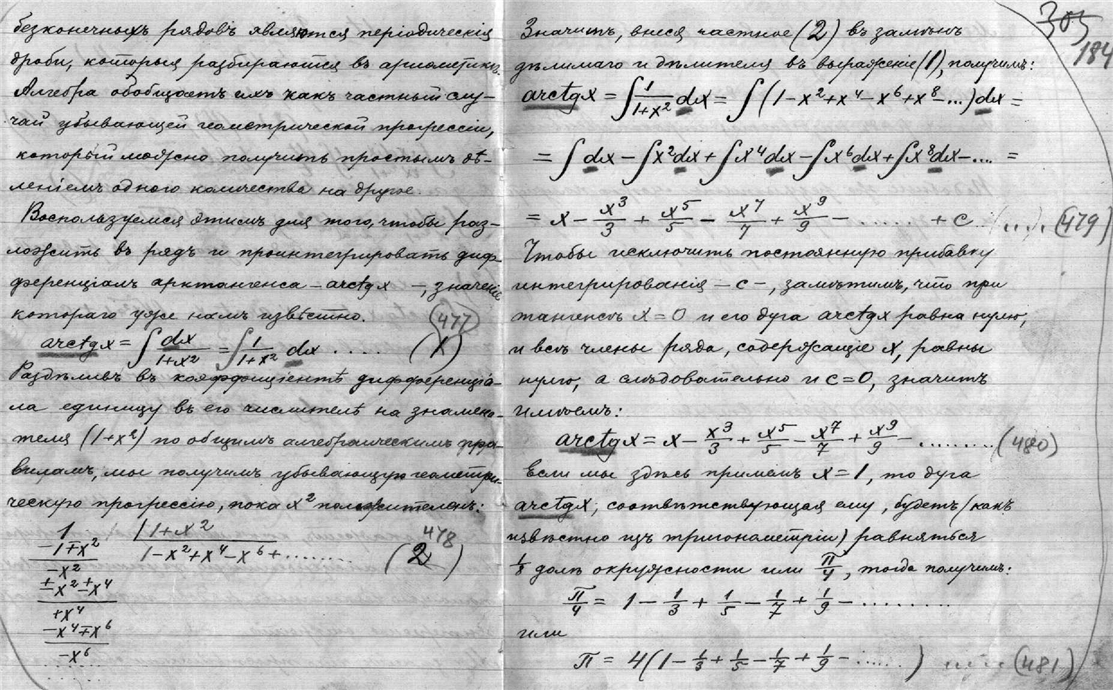 безконечныхъ рядовъ являются періодическія
дроби, которыя разбираются въ ариѳметикѣ.
Алгебра обобщаетъ ихъ какъ частный слу-
чай убывающей геометрической прогрессіи,
который можно получить простымъ дѣ-
леніемъ одного количества на другое.
Воспользуемся этимъ для того, чтобы раз-
ложить въ рядъ и проинтегрировать диф-
ференціалъ арктангенса – arctgx –, значеніе
котораго уже намъ извѣстно.
477
arctgx = ∫ dx/(1+x²) = ∫ 1/(1+x²) dx . . . . (1)
Раздѣливъ въ коэффиціентѣ дифференціа-
ла единицу въ его числителѣ на знамена-
теля (1+x²) по общимъ алгебраическимъ пра-
виламъ, мы получимъ убывающую геометри-
ческую прогрессію, пока x² положителенъ:
1 | 1+x²
478
−1∓x² | 1−x²+x⁴−x⁶+....... (2)
−x²
±x²±x⁴
+x⁴
−x⁴∓x⁶
−x⁶
. . . . .
305
184
Значитъ, внеся частное (2) въ замѣнъ
дѣлимаго и дѣлителя въ выраженіе (1), получимъ:
arctgx = ∫ 1/(1+x²) dx = ∫ (1−x²+x⁴−x⁶+x⁸−...) dx =
= ∫ dx − ∫x²dx + ∫x⁴dx − ∫x⁶dx + ∫x⁸dx − .... =
= x − x³/3 + x⁵/5 − x⁷/7 + x⁹/9 − . . . . . . . + c (...). (479)
Чтобы исключить постоянную прибавку
интегрированія – c –, замѣтимъ, что при
тангенсѣ x=0 и его дуга arctgx равна нулю,
и всѣ члены ряда, содержащіе x, равны
нулю, а слѣдовательно и c=0, значитъ
имѣемъ:
arctgx = x − x³/3 + x⁵/5 − x⁷/7 + x⁹/9 − . . . . . . . . (480)
Если мы здѣсь примемъ x=1, то дуга
arctgx, соотвѣтствующая ему, будетъ (какъ
извѣстно изъ тригонаметріи) равняться
⅛ долѣ окружности или π/4, тогда получимъ:
π/4 = 1 − 1/3 + 1/5 − 1/7 + 1/9 − . . . . . . . . .
или
π = 4(1 − 1/3 + 1/5 − 1/7 + 1/9 − ......) .... (481)